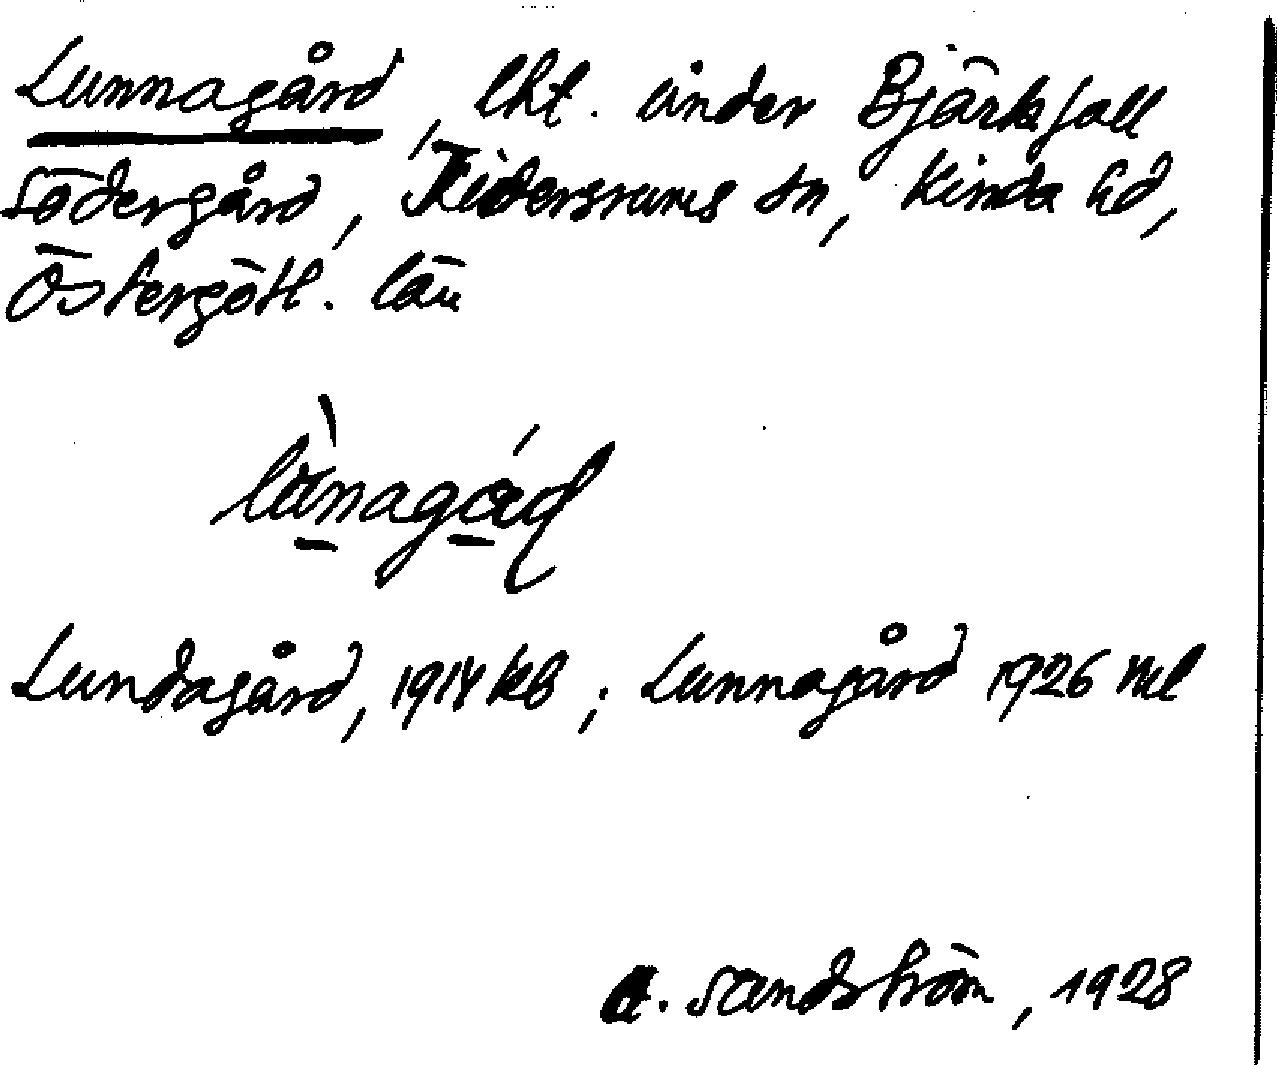 Lunnagård, lht. under Bjärkfall
Södergård, Tidersrums sn, Kinda hd,
Östergötl. län
Lundagård, 1914 kb; Lunnagård 1926 ml
A. Sandström, 1928